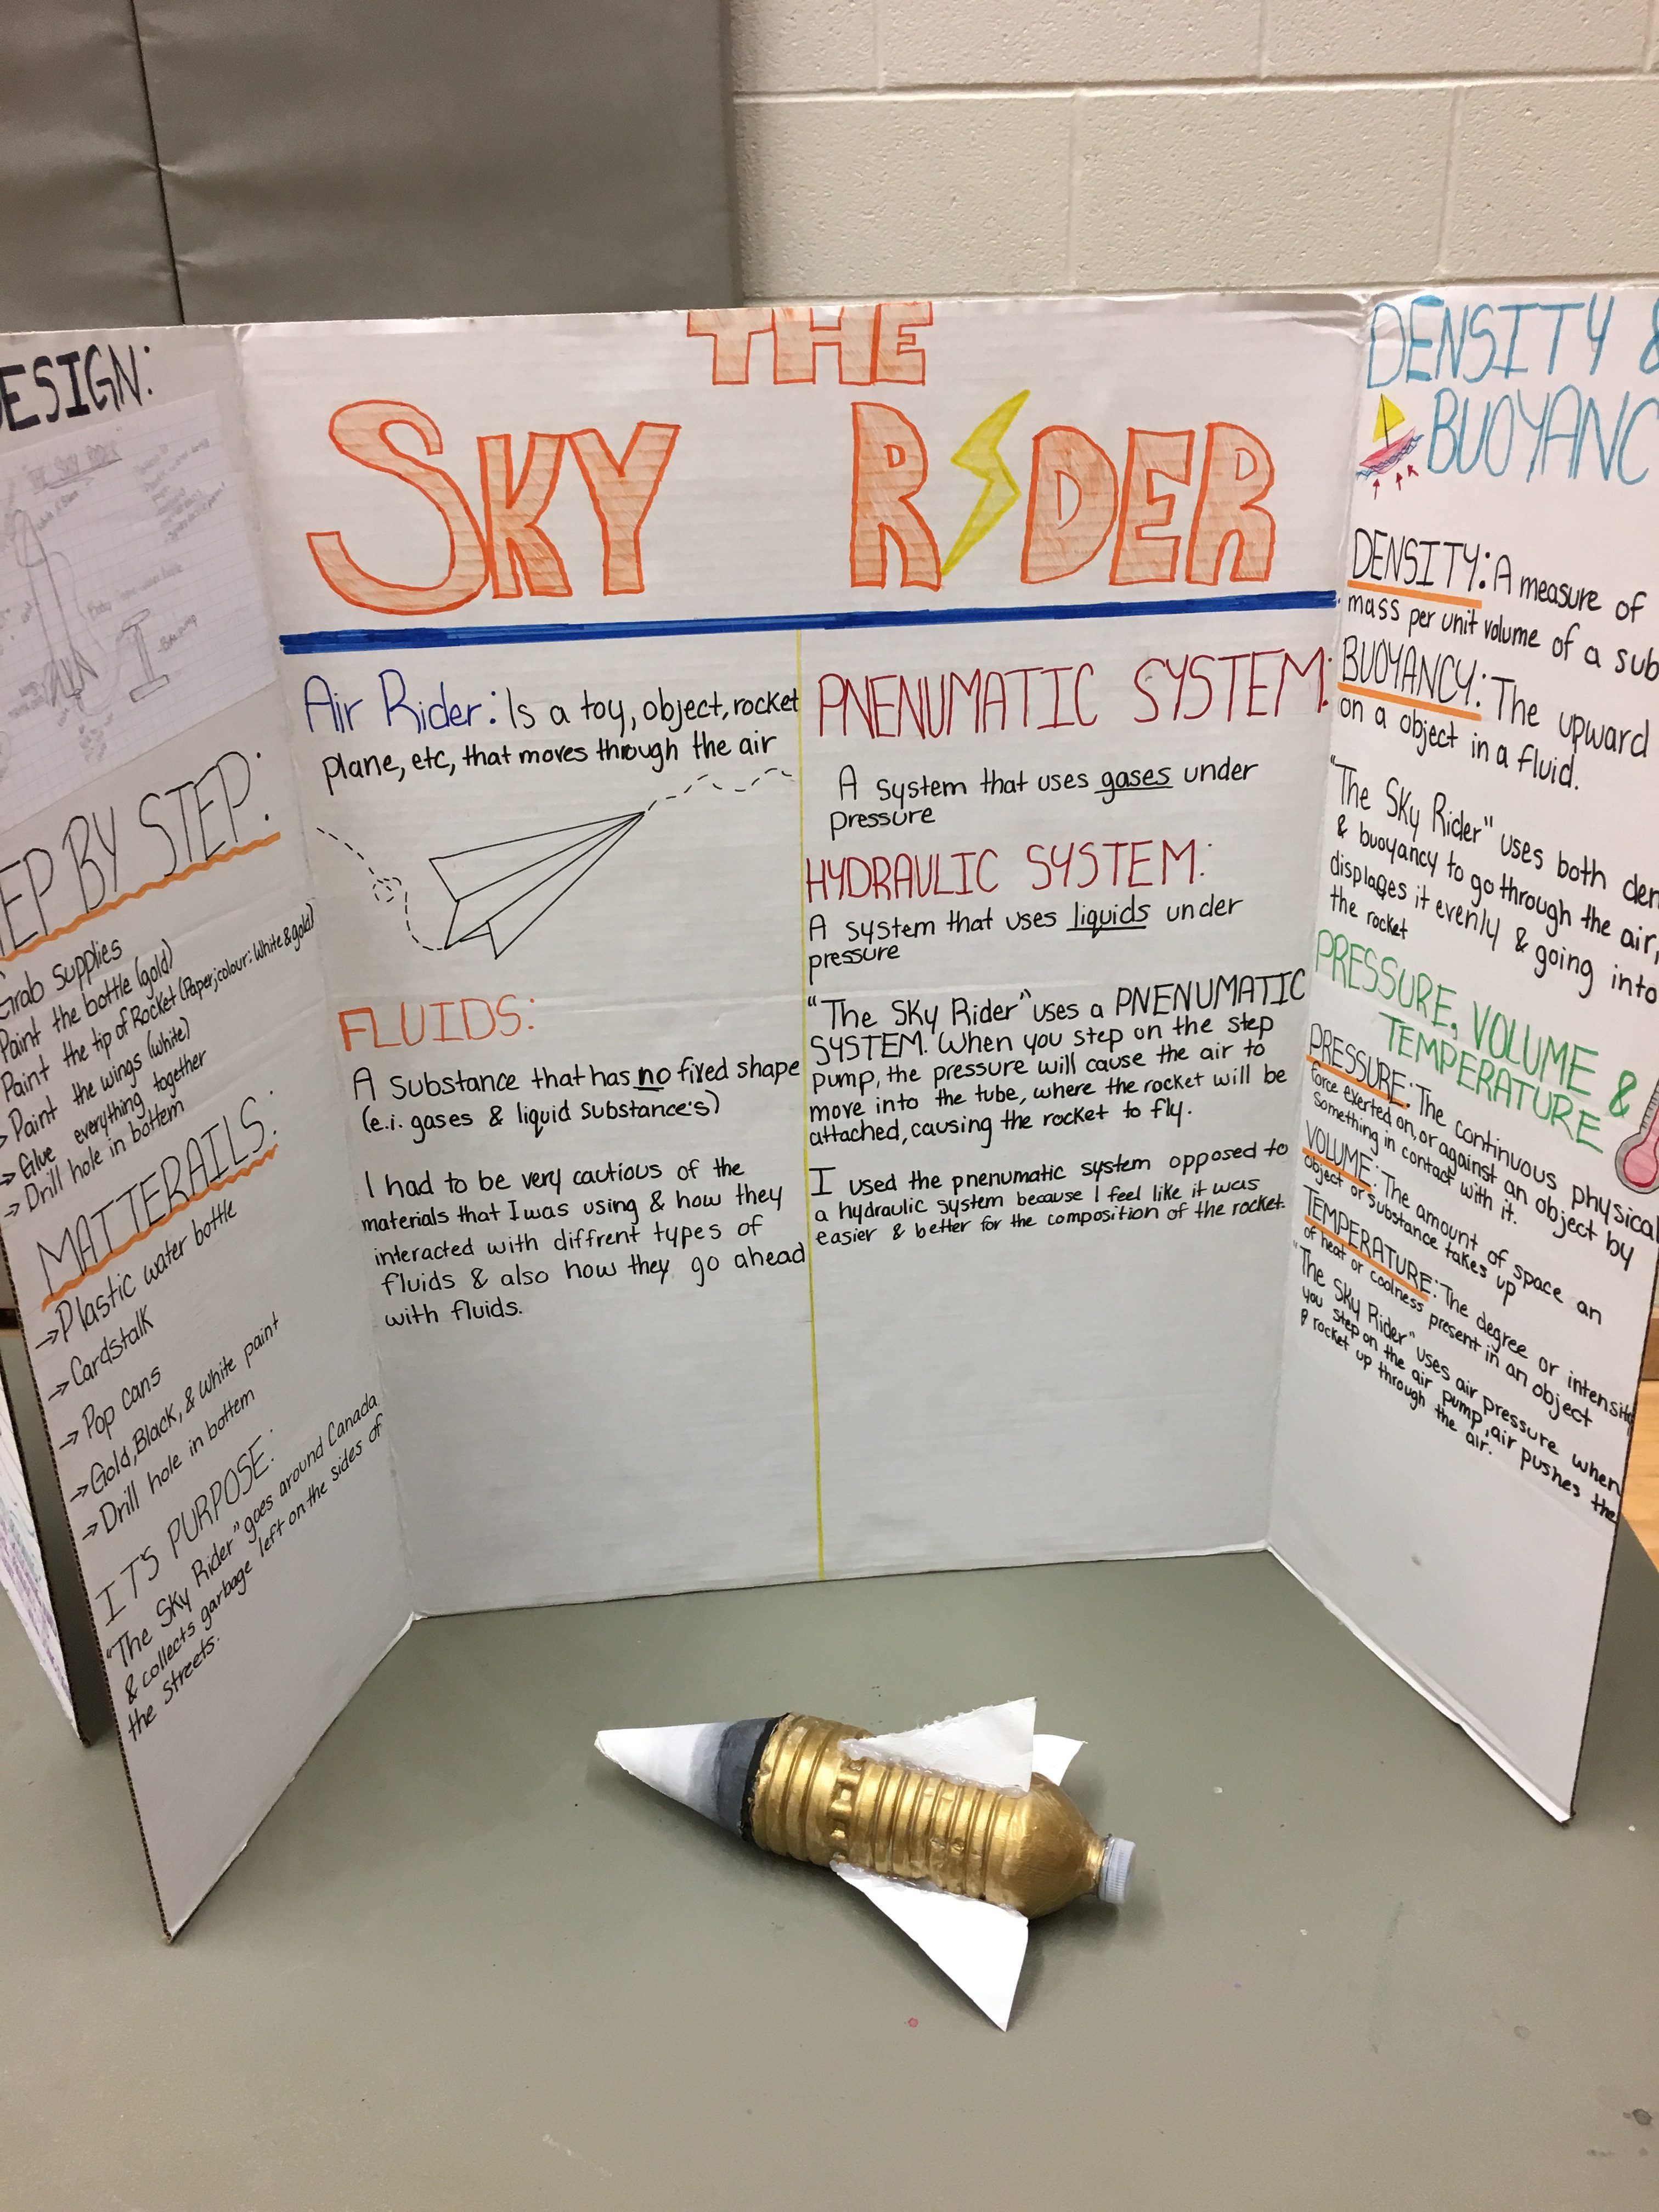 ESIGN:
EP BY STEP:
Grab Supplies
Paint the bottle (gold)
Paint the tip of Rocket (Paper; colour: White & gold)
→ Paint the wings (white)
→ Glue everything together
→ Drill hole in bottem
MATTERAILS:
→ Plastic water bottle
→ Cardstalk
→ Pop cans
→ Gold, Black, & white paint
→ Drill hole in bottem
IT'S PURPOSE:
"The Sky Rider" goes around Canada
& collects garbage left on the sides of
the streets.
THE
SKY RIDER
Air Rider: Is a toy, object, rocket
plane, etc, that moves through the air
FLUIDS:
A substance that has no fixed shape
(e.i. gases & liquid substance's)
I had to be very cautious of the
materials that I was using & how they
interacted with diffrent types of
fluids & also how they go ahead
with fluids.
PNENUMATIC SYSTEM:
A system that uses gases under
pressure
HYDRAULIC SYSTEM:
A system that uses liquids under
pressure
"The Sky Rider" uses a PNENUMATIC
SYSTEM. When you step on the step
pump, the pressure will cause the air to
move into the tube, where the rocket will be
attached, causing the rocket to fly.
I used the pnenumatic system opposed to
a hydraulic system because I feel like it was
easier & better for the composition of the rocket.
DENSITY &
BUOYANC
DENSITY: A measure of
mass per unit volume of a sub
BUOYANCY: The upward
on a object in a fluid.
"The Sky Rider" uses both den
& buoyancy to go through the air,
displaces it evenly & going into
the rocket
PRESSURE, VOLUME &
TEMPERATURE
PRESSURE: The continuous physical
force exerted on, or against an object by
something in contact with it.
VOLUME: The amount of space an
object or substance takes up
TEMPERATURE: The degree or intensity
of heat or coolness present in an object
"The Sky Rider" uses air pressure when
you step on the air pump, air pushes the
& rocket up through the air.